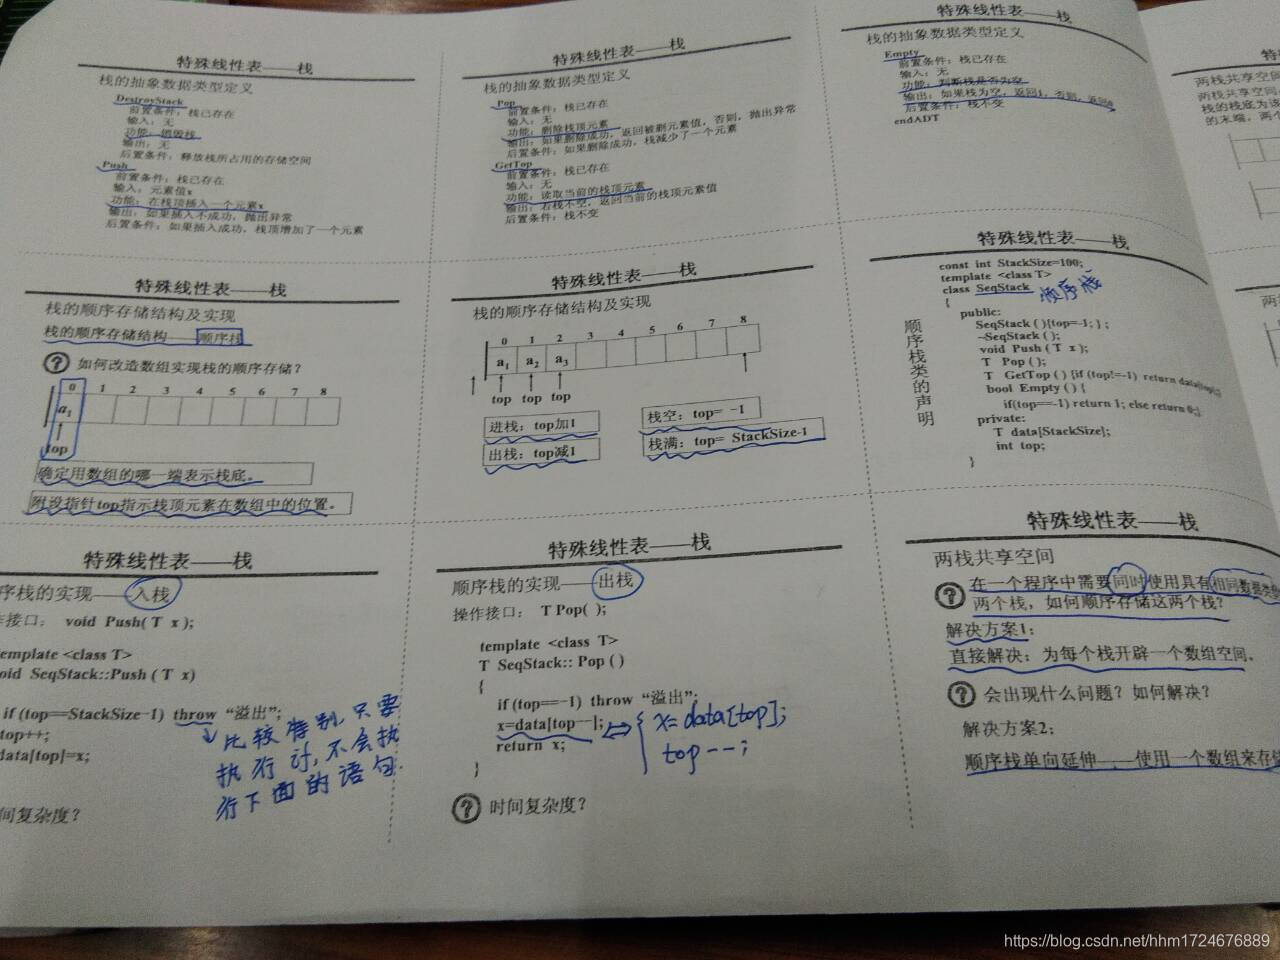 特殊线性表——栈
栈的抽象数据类型定义
DestroyStack
前置条件：栈已存在
输入：无
功能：销毁栈
输出：无
后置条件：释放栈所占用的存储空间
Push
前置条件：栈已存在
输入：元素值x
功能：在栈顶插入一个元素x
输出：如果插入不成功，抛出异常
后置条件：如果插入成功，栈顶增加了一个元素
特殊线性表——栈
栈的抽象数据类型定义
Pop
前置条件：栈已存在
输入：无
功能：删除栈顶元素
输出：如果删除成功，返回被删元素值，否则，抛出异常
后置条件：如果删除成功，栈减少了一个元素
GetTop
前置条件：栈已存在
输入：无
功能：读取当前的栈顶元素
输出：若栈不空，返回当前的栈顶元素值
后置条件：栈不变
特殊线性表——栈
栈的抽象数据类型定义
Empty
前置条件：栈已存在
输入：无
功能：判断栈是否为空
输出：如果栈为空，返回1，否则，返回0
后置条件：栈不变
endADT
特殊
两栈共享空间
两栈共享空间
栈的栈底为该
的末端，两个
特殊线性表——栈
栈的顺序存储结构及实现
栈的顺序存储结构——顺序栈
? 如何改造数组实现栈的顺序存储？
0 1 2 3 4 5 6 7 8
a1
top
确定用数组的哪一端表示栈底。
附设指针top指示栈顶元素在数组中的位置。
特殊线性表——栈
栈的顺序存储结构及实现
0 1 2 3 4 5 6 7 8
a1 a2 a3
top top top
进栈：top加1
栈空：top= -1
出栈：top减1
栈满：top= StackSize-1
特殊线性表——栈
顺序栈类的声明
const int StackSize=100;
template <class T>
class SeqStack 顺序栈
{
public:
SeqStack ( ){top=-1; } ;
~SeqStack ( );
void Push ( T x );
T Pop( );
T GetTop ( ) {if (top!=-1) return data[top];}
bool Empty ( ) {
if(top==-1) return 1; else return 0;}
private:
T data[StackSize];
int top;
}
两
特殊线性表——栈
序栈的实现——入栈
作接口： void Push( T x );
template <class T>
void SeqStack::Push ( T x)
if (top==StackSize-1) throw “溢出”;
top++;
data[top]=x;
比较特别，只要
执行过，不会执
行下面的语句.
间复杂度？
特殊线性表——栈
顺序栈的实现——出栈
操作接口： T Pop( );
template <class T>
T SeqStack:: Pop ( )
{
if (top==-1) throw “溢出”;
x=data[top--];
return x;
}
x= data[top];
top--;
? 时间复杂度？
特殊线性表——栈
两栈共享空间
? 在一个程序中需要同时使用具有相同数据类型
两个栈，如何顺序存储这两个栈？
解决方案1：
直接解决：为每个栈开辟一个数组空间。
? 会出现什么问题？如何解决？
解决方案2：
顺序栈单向延伸——使用一个数组来存储
https://blog.csdn.net/hhm1724676889